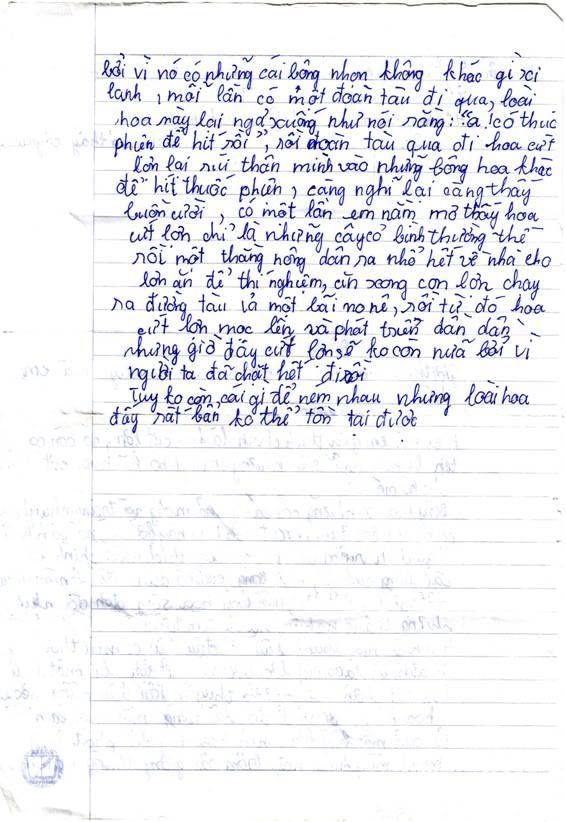 bởi vì nó có những cái bông nhọn không khác gì xi
lanh, mỗi lần có một đoàn tàu đi qua, loài
hoa này lại ngả xuống như nói rằng: "a có thuốc
phiên để hít rồi", rồi đoàn tàu qua đi hoa cứt
lơn lại rúi thân mình vào những bông hoa khác
để hít thuốc phiên, càng nghĩ lại càng thấy
buồn cười, có một lần em nằm mơ thấy hoa
cứt lơn chỉ là những cây cỏ bình thường thế
rồi một thằng nông dân ra nhổ hết về nhà cho
lơn ăn để thí nghiệm, ăn xong con lơn chay
ra đường tàu ỉa một bãi no nê, rồi từ đó hoa
cứt lơn moc lên và phát triển dần dần
nhưng giờ đây cứt lơn sẽ ko còn nữa bởi vì
người ta đã chặt hết đi rồi
Tuy ko còn cái gì để ném nhau nhưng loài hoa
đấy rất bẩn ko thể tồn tai được